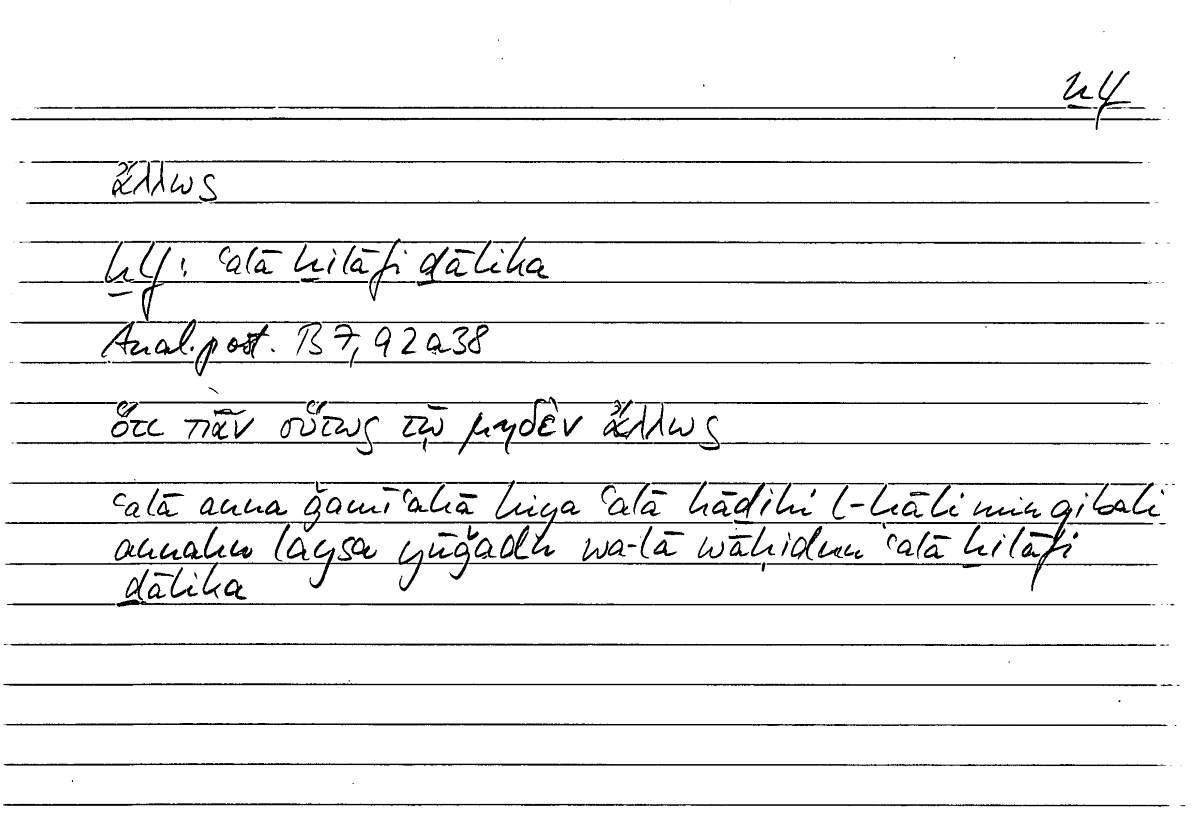 ḫlf
ἄλλως
ḫlf: ʿalā ḫilāfi ḏālika
Anal. post. B 7, 92 a 38
ὅτι πᾶν οὕτως τῷ μηδὲν ἄλλως
ʿalā anna ǧamīʿahā hiya ʿalā hāḏihi l-ḥāli min qibali
annahu laysa yūǧadu wa-lā wāḥidun ʿalā ḫilāfi
ḏālika